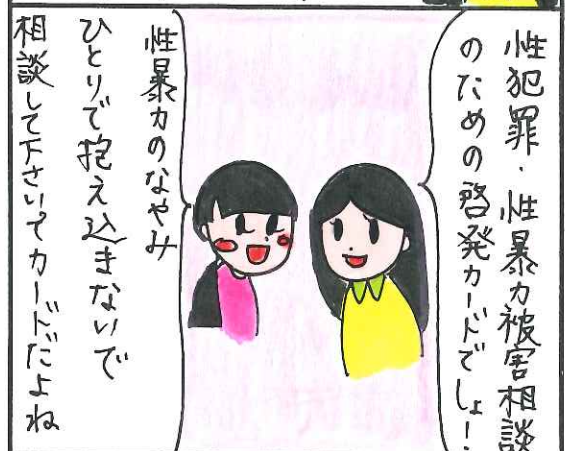 性犯罪・性暴力被害相談
のための啓発カードでしょ!
性暴力のなやみ
ひとりで抱え込まないで
相談して下さいてカードだよね